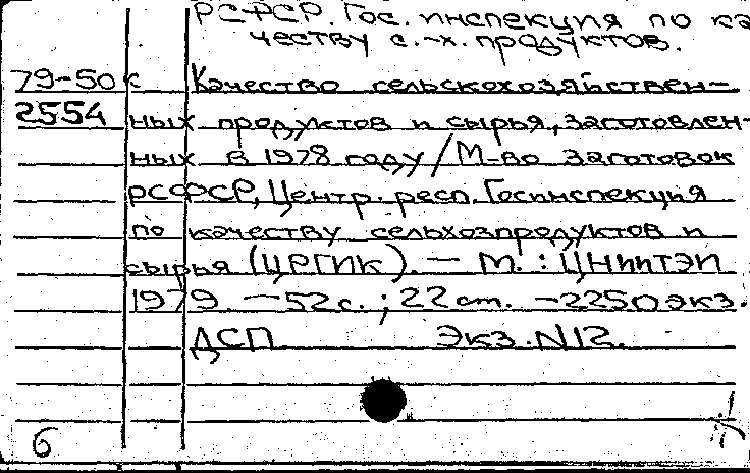 РСФСР. Гос. инспекция по ка
честву с.-х. продуктов.
79-50к Качество сельскохозяйствен-
2554 ных продуктов и сырья, заготовлен-
ных в 1978 году / М-во заготовок
РСФСР, Центр. респ. Госинспекция
по качеству сельхозпродуктов и
сырья (ЦРГИК). — М. : ЦНИИТЭИ
1979 — 52 с. ; 22 см. — 2250 экз.
ДСП Экз. N12.
6